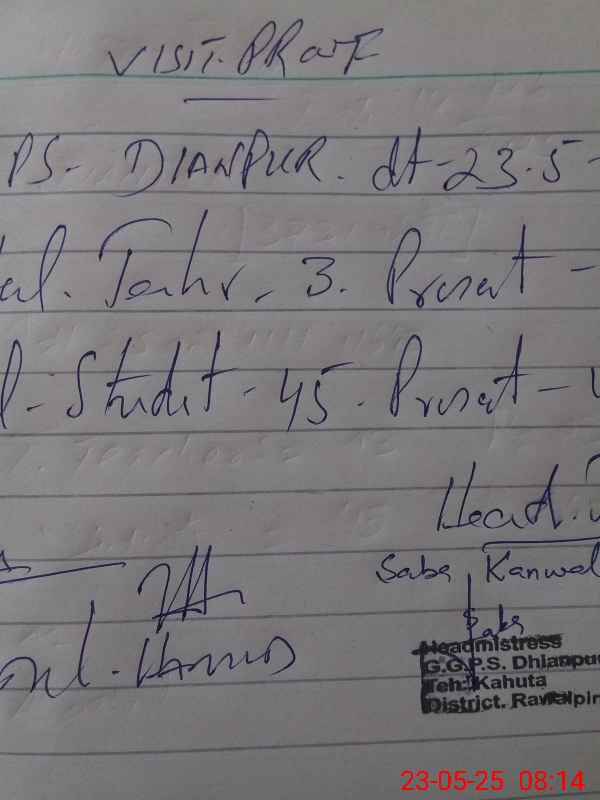 VISIT. PROOF
PS- DIANPUR. dt-23.5-
al. Teahr. 3. Present -
l- Studet - 45. Present -
Head.
Saba Kanwal
Saba
Headmistress
G.G.P.S. Dhianpur
Teh: Kahuta
District. Rawalpin
23-05-25 08:14